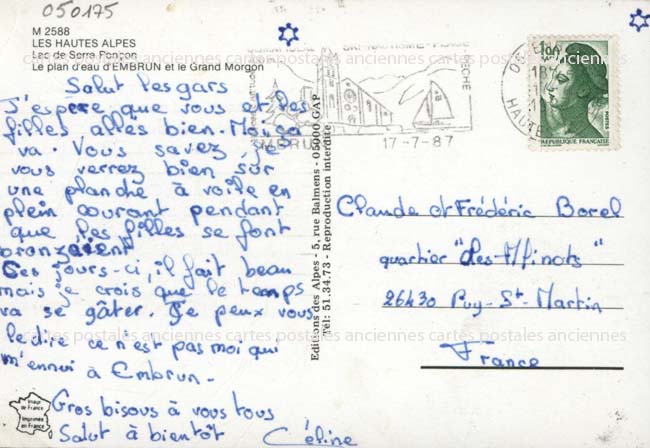 050175
M 2588
LES HAUTES ALPES
Lac de Serre Ponçon
Le plan d'eau d'EMBRUN et le Grand Morgon
Salut les gars
J'espère que vous et les
filles alles bien. Moi, ça
va. Vous savez, je
vous verrez bien sur
une planche à voile en
plein courant pendant
que les filles se font
bronzaient
Ces jours-ci, il fait beau
mais je crois que le temps
va se gâter. Je peux vous
le dire ce n'est pas moi qui
m'ennui à Embrun.
Gros bisous à vous tous
Salut à bientôt Céline
Imprimée
en France
Editions des Alpes - 5, rue Balmens - 05000 GAP
Tél: 51.34.73 - Reproduction interdite
NAUTISME
EMBRUN
17-7-87
HAUTE
1,90
POSTES
REPUBLIQUE FRANÇAISE
Claude et Frédéric Borel
quartier "des
26430 Puy-St-Martin
France
cartes postales anciennes cartes postales anciennes cartes postales anciennes